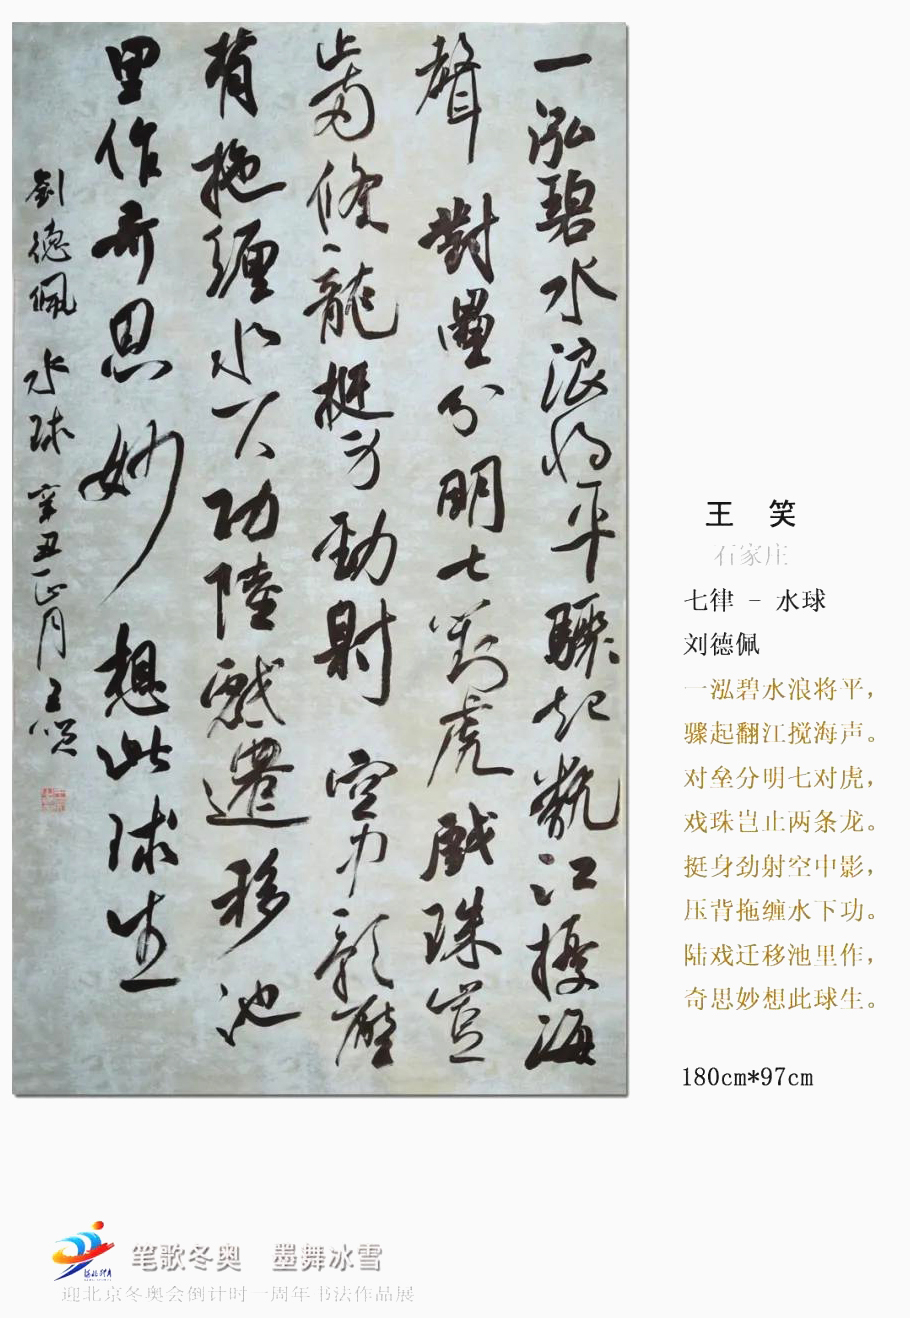 一泓碧水浪将平骤起翻江搅海
聲 對壘分明七对虎戲珠豈
止两條龍挺身劲射空中影壓
背拖缠水下功陸戲遷移池
里作奇思妙想此球生
劉德佩水球辛丑正月王笑
王 笑
石家庄
七律 - 水球
刘德佩
一泓碧水浪将平，
骤起翻江搅海声。
对垒分明七对虎，
戏珠岂止两条龙。
挺身劲射空中影，
压背拖缠水下功。
陆戏迁移池里作，
奇思妙想此球生。
180cm*97cm
笔歌冬奥 墨舞冰雪
迎北京冬奥会倒计时一周年书法作品展